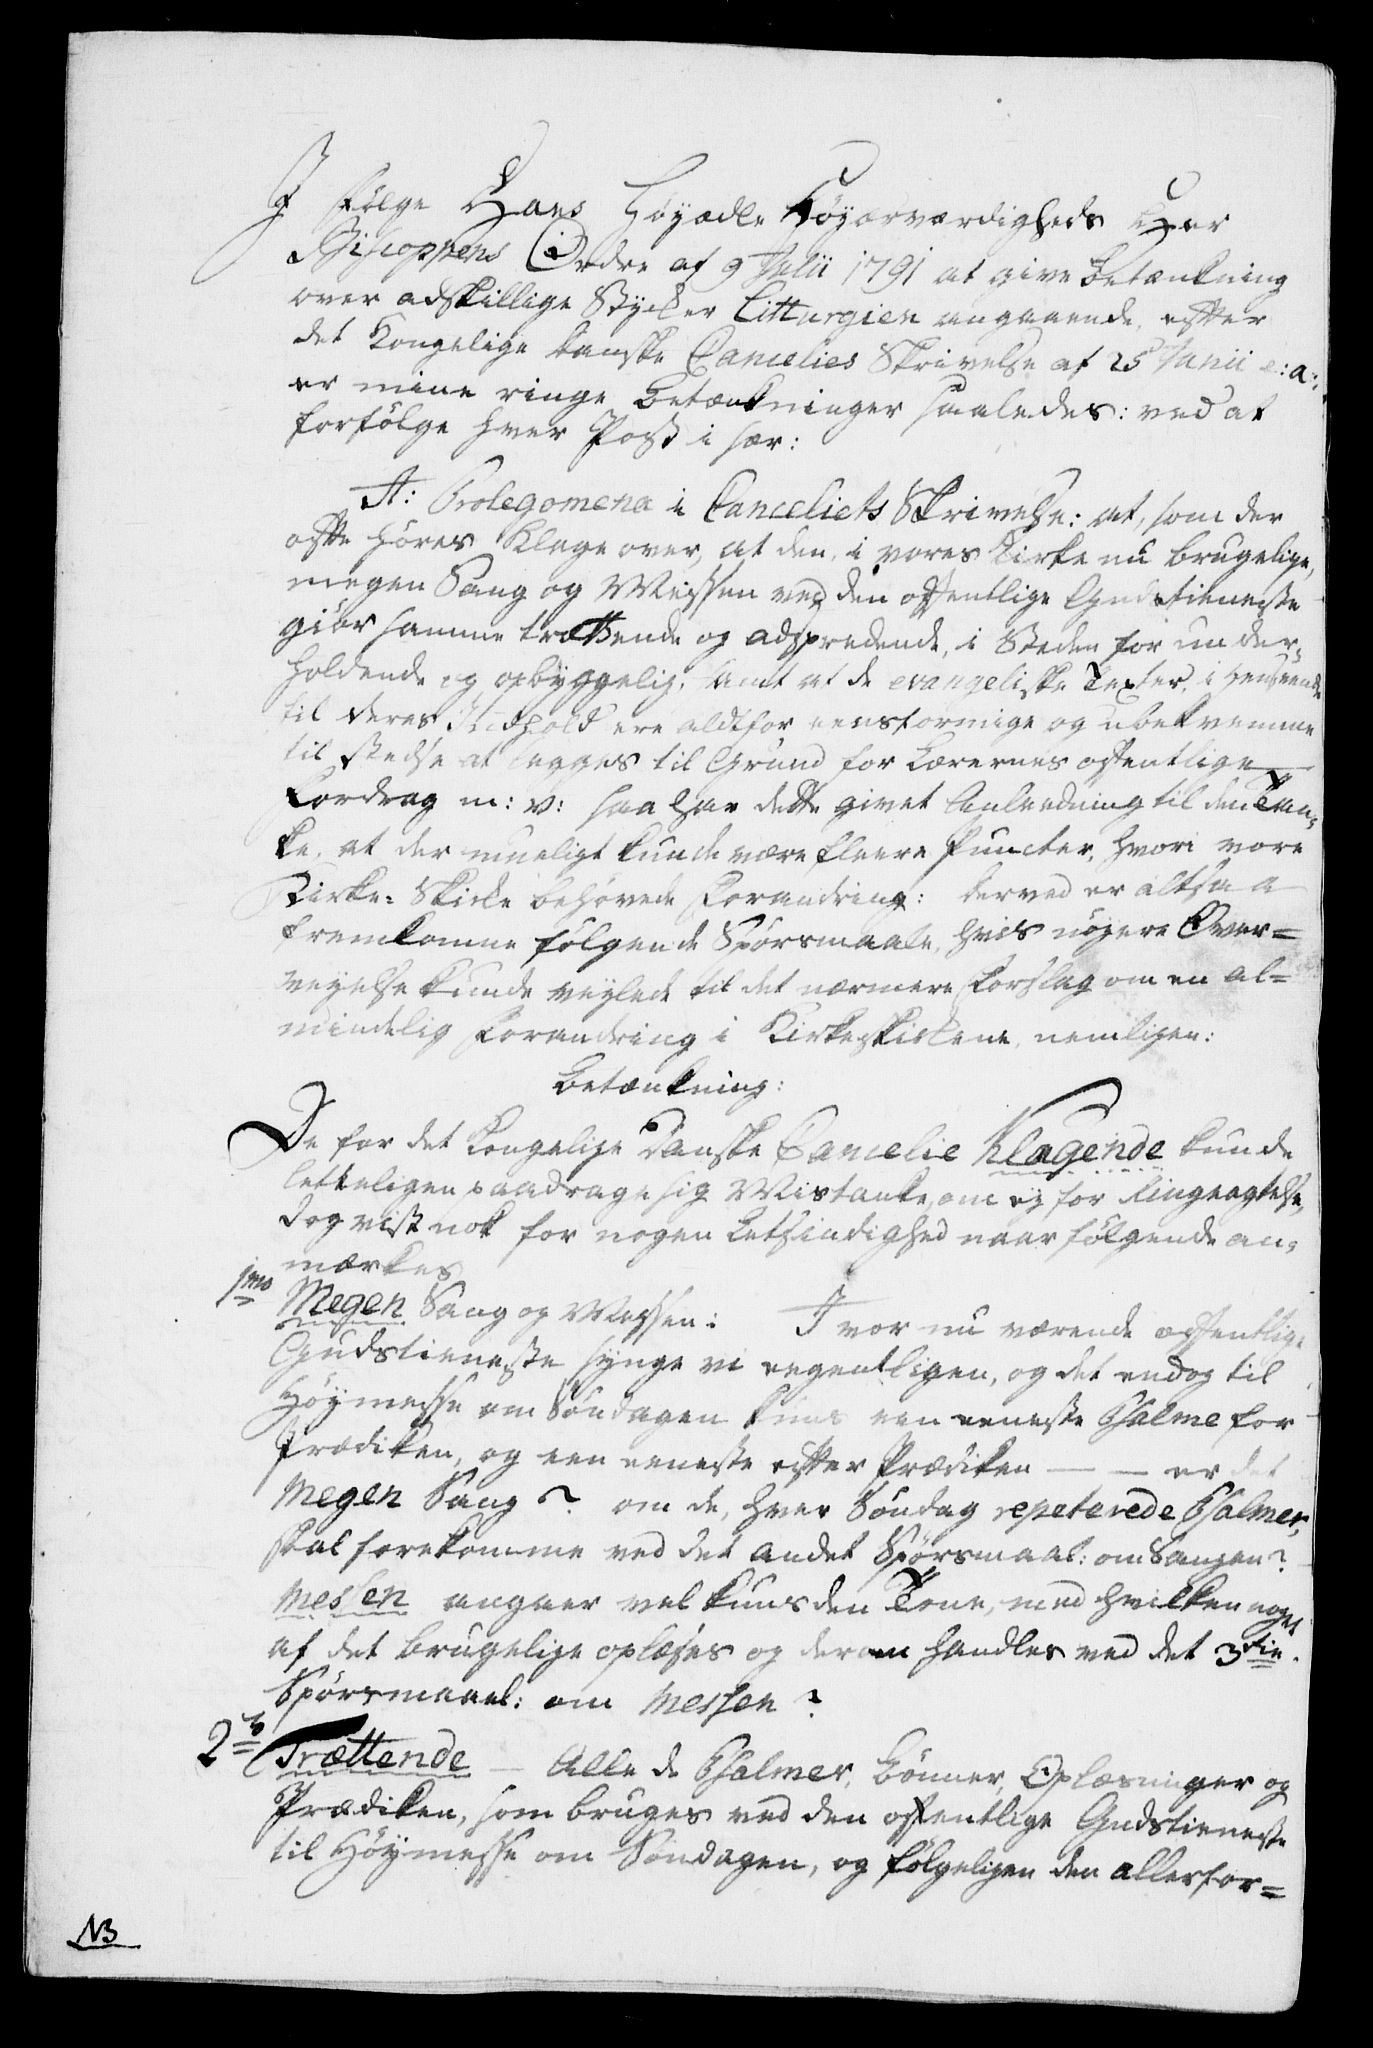 I følge Hans Höyædle Höyærværdigheds Her
Biscoppens Ordre af 9 Julii 1791 at give Betænkning
over adskillige Stycker Litturgien angaaende, efter
det Kongelige danske Cancelies Skrivelse af 25 Junii e: a:,
er mine ringe Betænkninger saaledes: ved at
forfölge hver Post i sær:
A: Prolegomena i Canceliets Skrivelse: at, som der
ofte höres Klage over, at den, i vores Kirke nu brugelige,
megen Sang og Messen ved den offentlige Gudstieneste
giör samme trættende og adspredende, i Steden for under-
holdende og opbyggelig, samt at de evangeliske Texter, i Henseende
til deres Indhold ere altfor eensformige og ubekvemme
til stedse at legges til Grund for Lærernes offentlige
Fordrag m: v: saa har dette givet Anleedning til den Tan-
ke, at der mueligt kunde være fleere Puncter, hvori vore
Kirke-Skicke behövede Forandring: derved er altsaa
fremkomne fölgende Spörsmaale, hvis nöyere Over=
veyelse kunde veylede til det nærmere Forslag om en al=
mindelig Forandring i Kirkeskickene, nemligen:
Betænkning:
De for det Kongelige Danske Cancelie klagende kunde
letteligen paadrage sig Mistanke, om ey for Ringeagtelse,
dog vist nok for nogen Letsindighed naar fölgende an-
mærkes
1mo Megen Sang og Messen: I vor nu værende offentlige
Gudstieneste synge vi eegentligen, og det endog til
Höymesse om Söndagen kuns een eeneste Psalme for
Prædiken, og een eeneste efter Prædiken — — er det
Megen Sang? om de, hver Söndag repeterede Psalmer,
skal forekomme ved det andet Spörsmaal: om Sangen?
Messen angaaer vel kuns den Tone, med hvilken noget
af det brugelige oplæses og derom handles ved det 3die
Spörsmaal: om Messen?
2do Trættende — Alle de Psalmer, Bönner, Oplæsninger og
Prædiken, som bruges ved den offentlige Gudstieneste
til Höymesse om Söndagen, og fölgeligen den allerfor=
NB